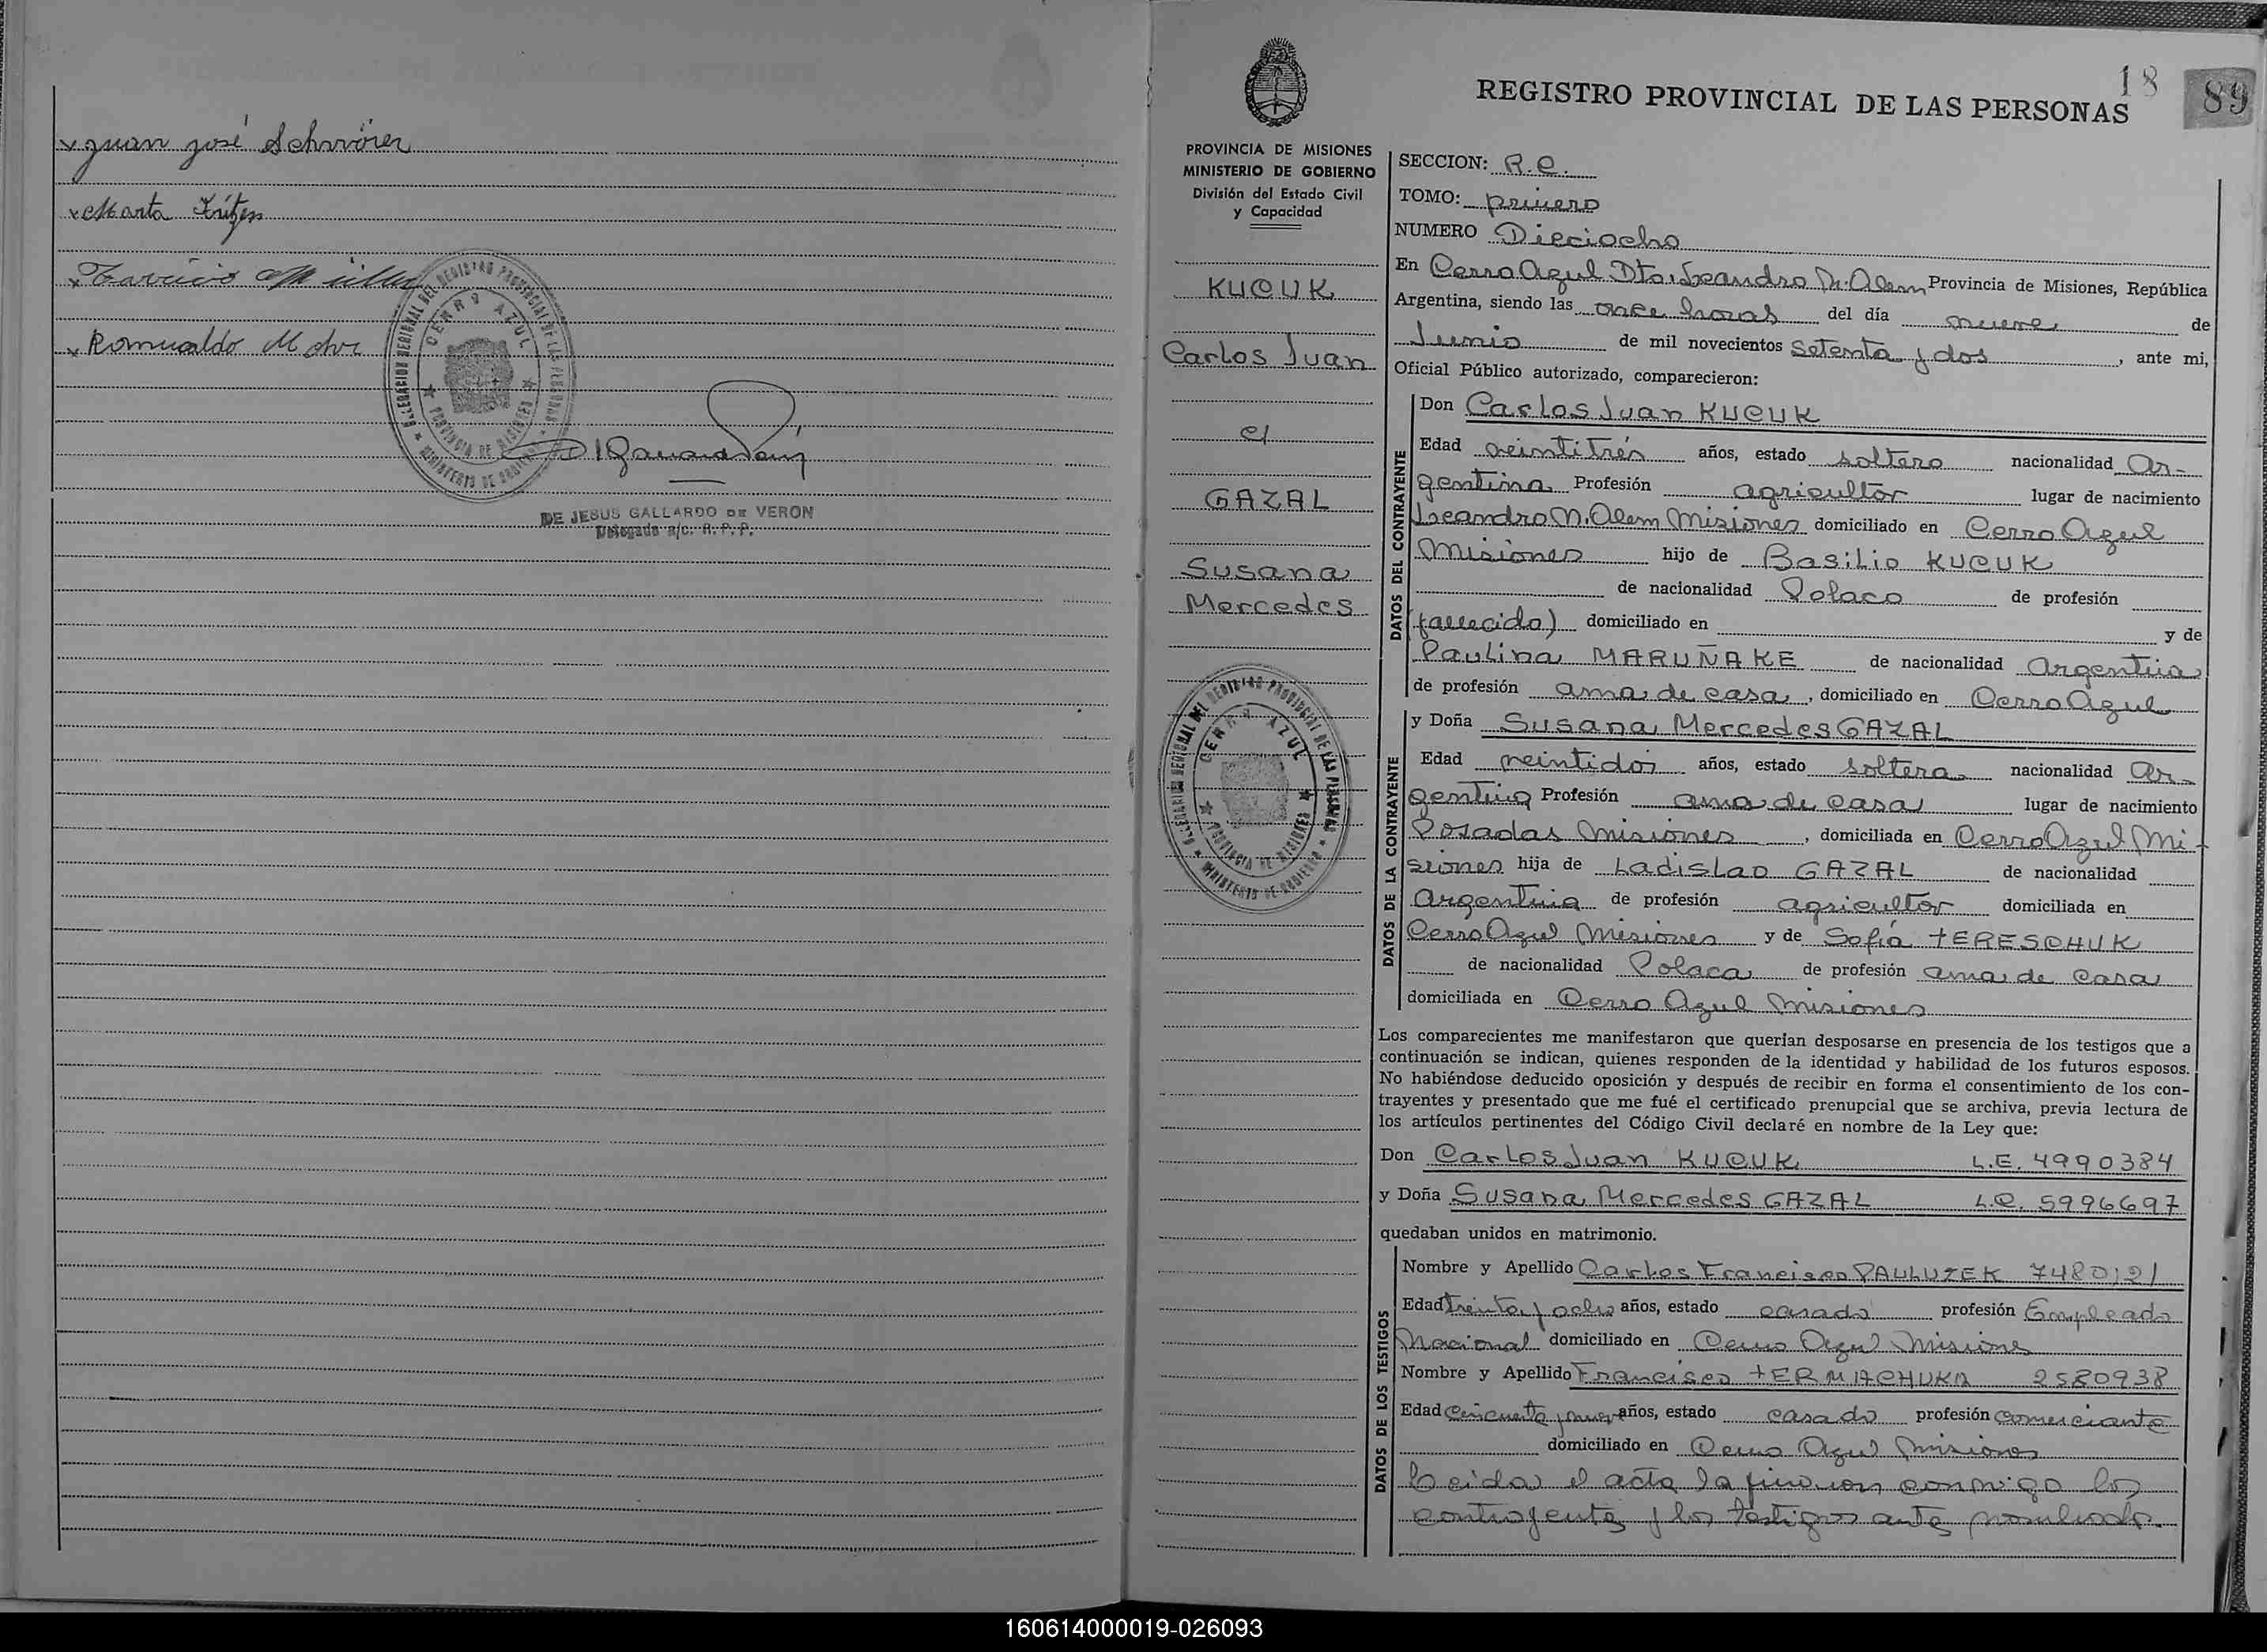 x Juan José Schvörer
x Marta Fritzen
x Tarcicio Müller
x Romualdo
DELEGACION REGIONAL DEL REGISTRO PROVINCIAL DE LAS PERSONAS
CERRO AZUL
PROVINCIA DE MISIONES
MINISTERIO DE GOBIERNO
DE JESUS GALLARDO DE VERON
Delegada a/c. R. P. P.
18
89
REGISTRO PROVINCIAL DE LAS PERSONAS
PROVINCIA DE MISIONES
MINISTERIO DE GOBIERNO
División del Estado Civil
y Capacidad
KUCUK
Carlos Juan
c/
GAZAL
Susana
Mercedes
DELEGACION REGIONAL DEL REGISTRO PROVINCIAL DE LAS PERSONAS
CERRO AZUL
PROVINCIA DE MISIONES
MINISTERIO DE GOBIERNO
SECCION: R.C.
TOMO: primero
NUMERO Dieciocho
En Cerro Azul Dto. Leandro N. Alem Provincia de Misiones, República
Argentina, siendo las once horas del día nueve de
Junio de mil novecientos setenta y dos, ante mi,
Oficial Público autorizado, comparecieron:
DATOS DEL CONTRAYENTE
Don Carlos Juan KUCUK
Edad veintitrés años, estado soltero nacionalidad Ar-
gentina Profesión agricultor lugar de nacimiento
Leandro N. Alem Misiones domiciliado en Cerro Azul
Misiones hijo de Basilio KUCUK
de nacionalidad Polaco de profesión
(fallecido) domiciliado en y de
Paulina MARUÑAKE de nacionalidad Argentina
de profesión ama de casa, domiciliado en Cerro Azul
DATOS DE LA CONTRAYENTE
y Doña Susana Mercedes GAZAL
Edad veintidos años, estado soltera nacionalidad Ar-
gentina Profesión ama de casa lugar de nacimiento
Posadas Misiones, domiciliada en Cerro Azul Mi-
siones hija de Ladislao GAZAL de nacionalidad
Argentina de profesión agricultor domiciliada en
Cerro Azul Misiones y de Sofía TERESCHUK
de nacionalidad Polaca de profesión ama de casa
domiciliada en Cerro Azul Misiones
Los comparecientes me manifestaron que querían desposarse en presencia de los testigos que a
continuación se indican, quienes responden de la identidad y habilidad de los futuros esposos.
No habiéndose deducido oposición y después de recibir en forma el consentimiento de los con-
trayentes y presentado que me fué el certificado prenupcial que se archiva, previa lectura de
los artículos pertinentes del Código Civil declaré en nombre de la Ley que:
Don Carlos Juan KUCUK L.E. 4990384
y Doña Susana Mercedes GAZAL L.C. 5996697
quedaban unidos en matrimonio.
DATOS DE LOS TESTIGOS
Nombre y Apellido Carlos Francisco PAULUZEK 7480121
Edad treinta y ocho años, estado casado profesión Empleado
Nacional domiciliado en Cerro Azul Misiones
Nombre y Apellido Francisco TERMACHUKA 2580938
Edad cincuenta y nueve años, estado casado profesión comerciante
domiciliado en Cerro Azul Misiones
Leida el acta la firman conmigo los
contrayentes y los testigos ante nombrados.
160614000019-026093